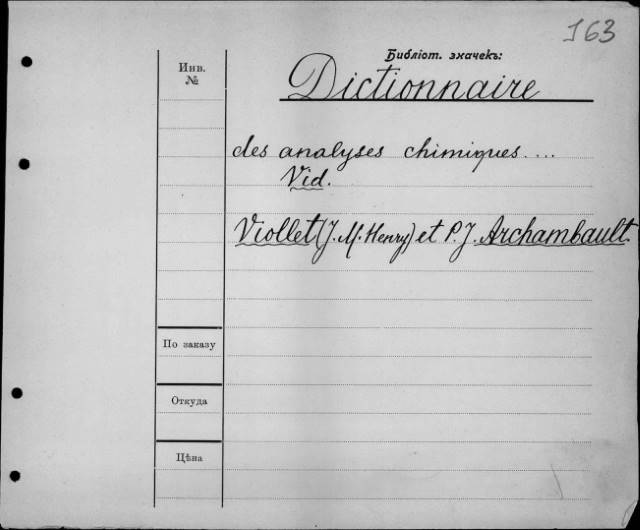 163
Библіот. значекъ:
Инв.
№
Dictionnaire
des analyses chimiques....
Vid.
Viollet (J. M. Henry) et P. J. Archambault.
По заказу
Откуда
Цѣна